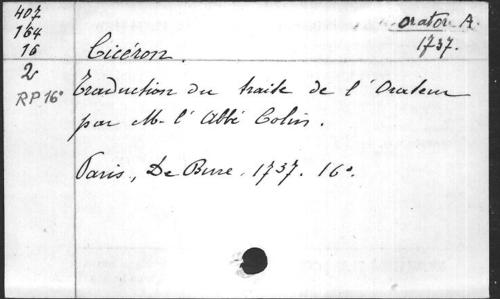 407
164
16
2
RP 16°
Orator A.
1737.
Cicéron.
Traduction du traité de l'Orateur
par Mr l'Abbé Colin.
Paris, De Bure. 1737. 16°.